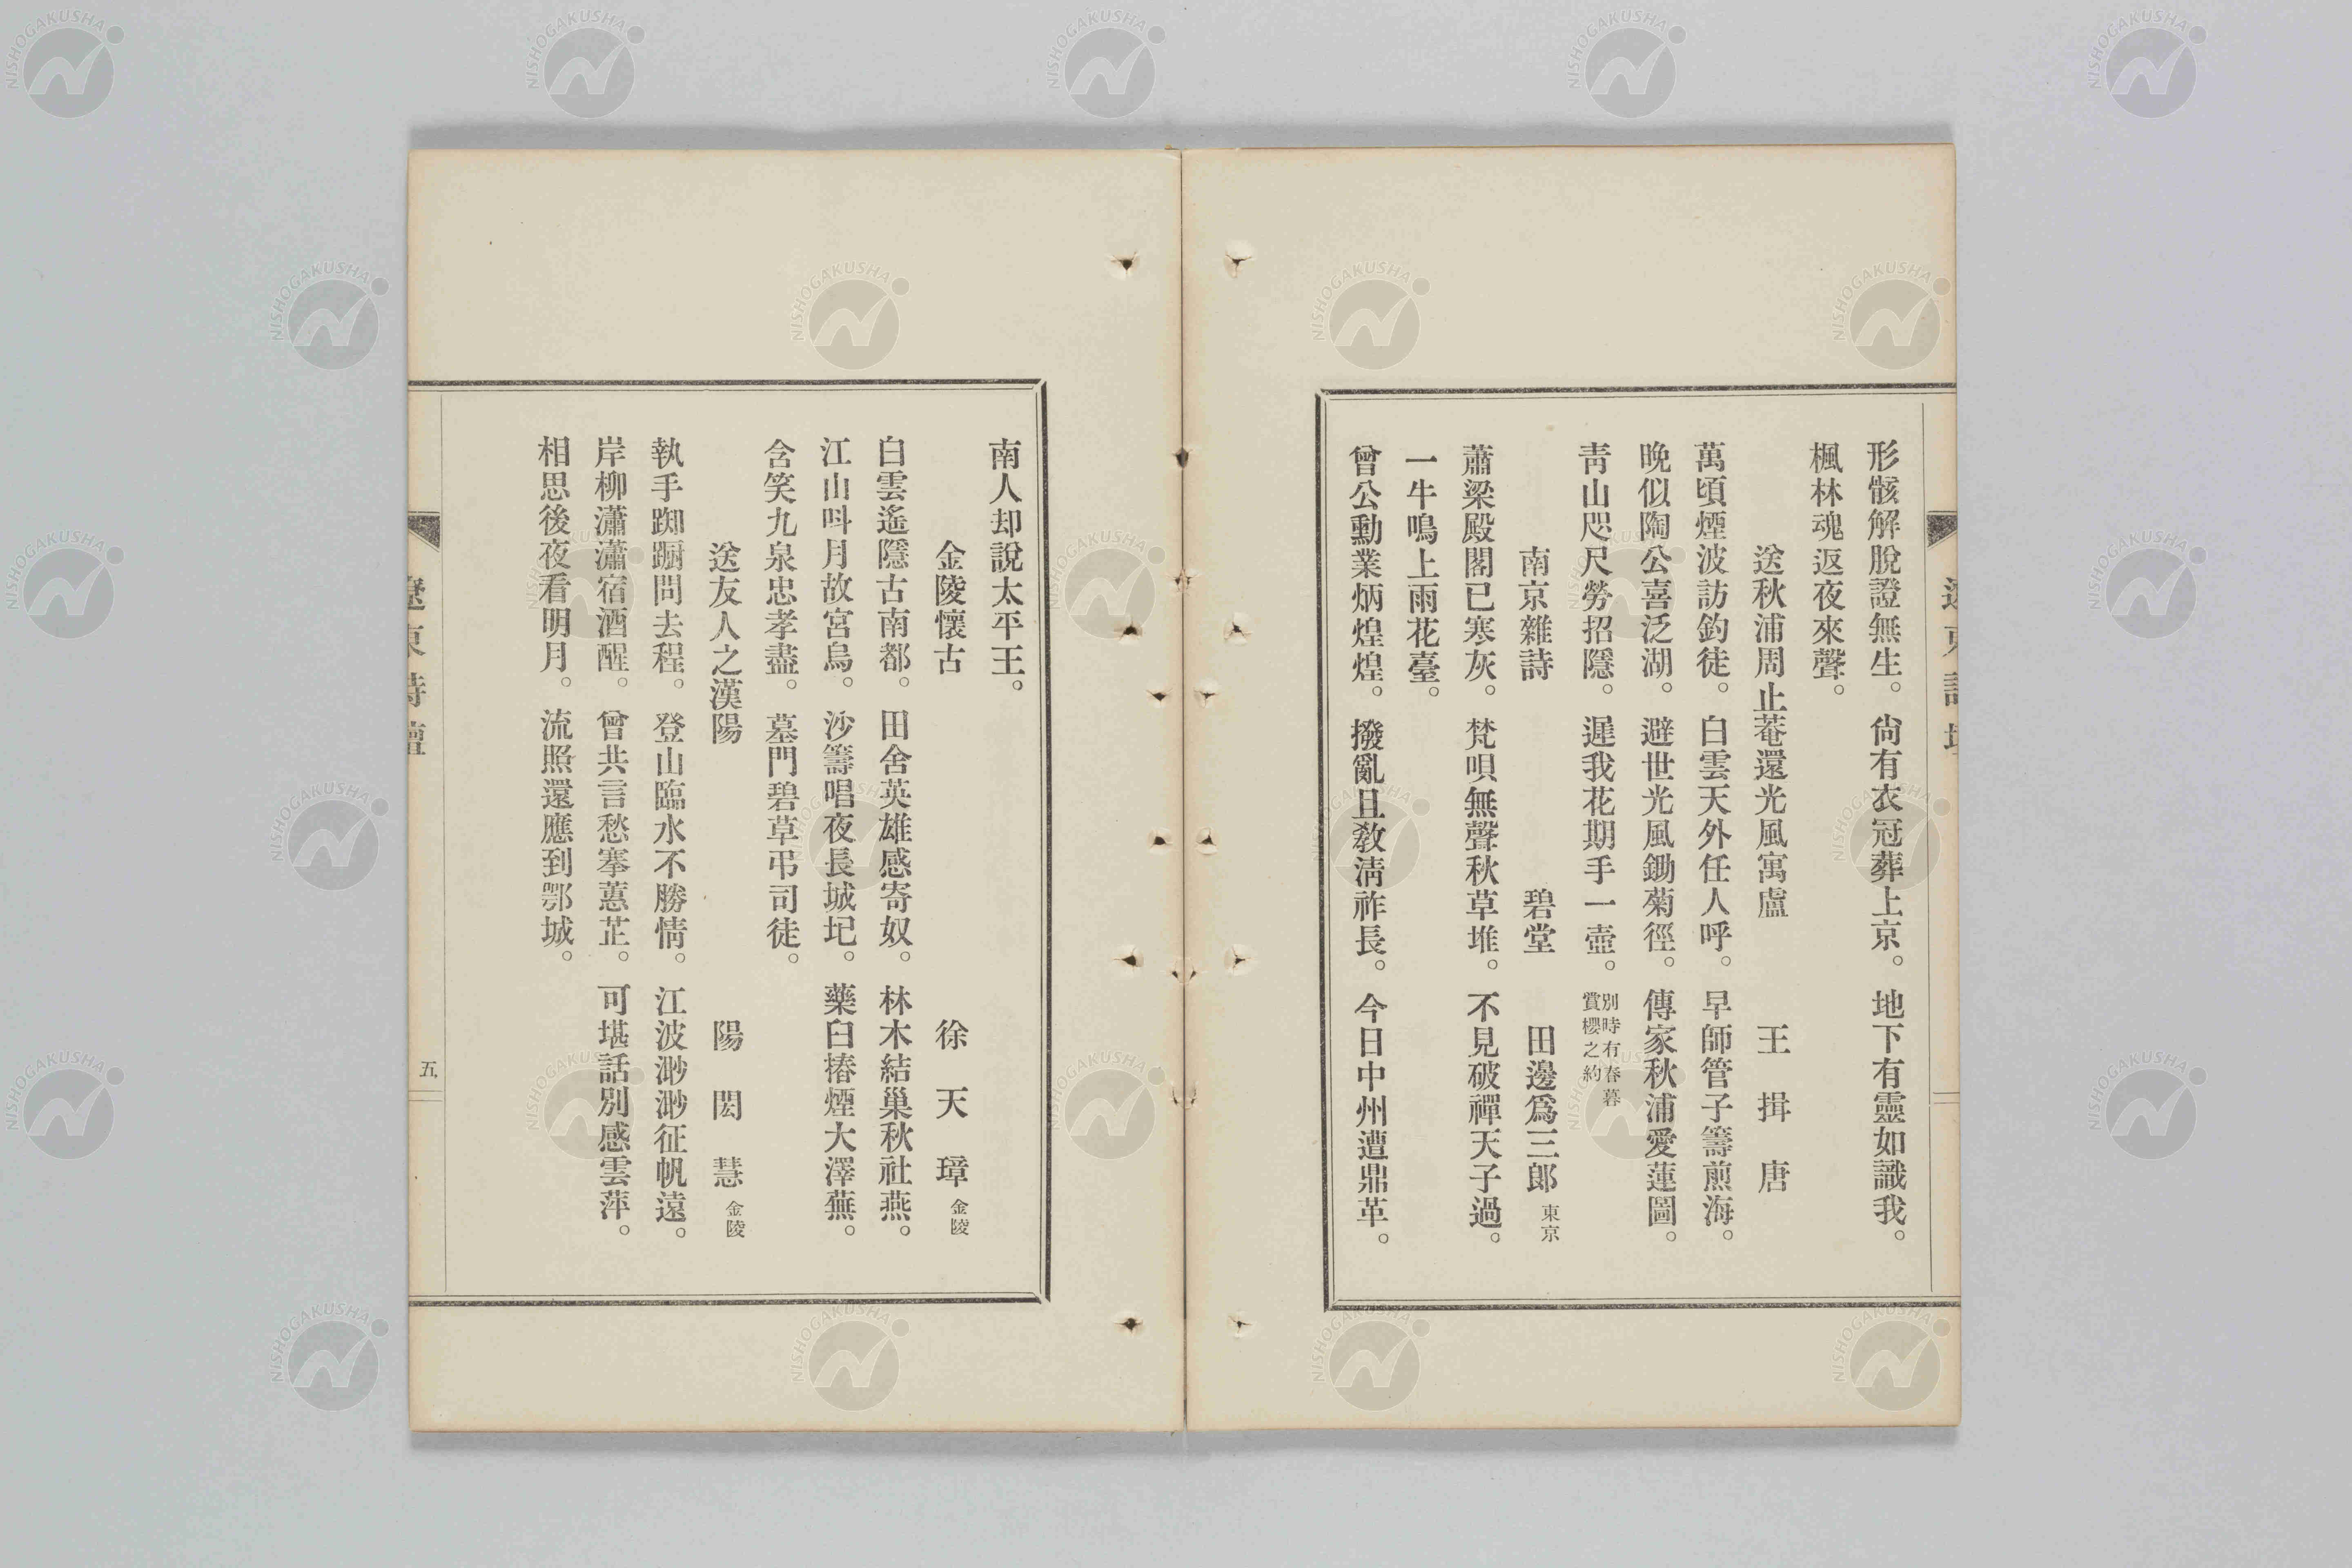 形骸解脫證無生。尙有衣冠葬上京。地下有靈如識我。
楓林魂返夜來聲。
送秋浦周止菴還光風寓盧　王揖唐
萬頃煙波訪釣徒。白雲天外任人呼。早師管子籌煎海。
晚似陶公喜泛湖。避世光風鋤菊徑。傳家秋浦愛蓮圖。
靑山咫尺勞招隱。遲我花期手一壺。別時有春暮賞櫻之約
南京雜詩　碧堂　田邊爲三郞　東京
蕭梁殿閣已寒灰。梵唄無聲秋草堆。不見破禪天子過。
一牛鳴上雨花臺。
曾公勳業炳煌煌。撥亂且敎淸祚長。今日中州遭鼎革。
南人却說太平王。
金陵懷古　徐天璋　金陵
白雲遙隱古南都。田舍英雄感寄奴。林木結巢秋社燕。
江山呌月故宮烏。沙籌唱夜長城圮。藥臼摏煙大澤蕪。
含笑九泉忠孝盡。墓門碧草弔司徒。
送友人之漢陽　陽閎慧　金陵
執手踟蹰問去程。登山臨水不勝情。江波渺渺征帆遠。
岸柳瀟瀟宿酒醒。曾共言愁搴蕙芷。可堪話別感雲萍。
相思後夜看明月。流照還應到鄂城。
遼東詩壇
五
NISHOGAKUSHA